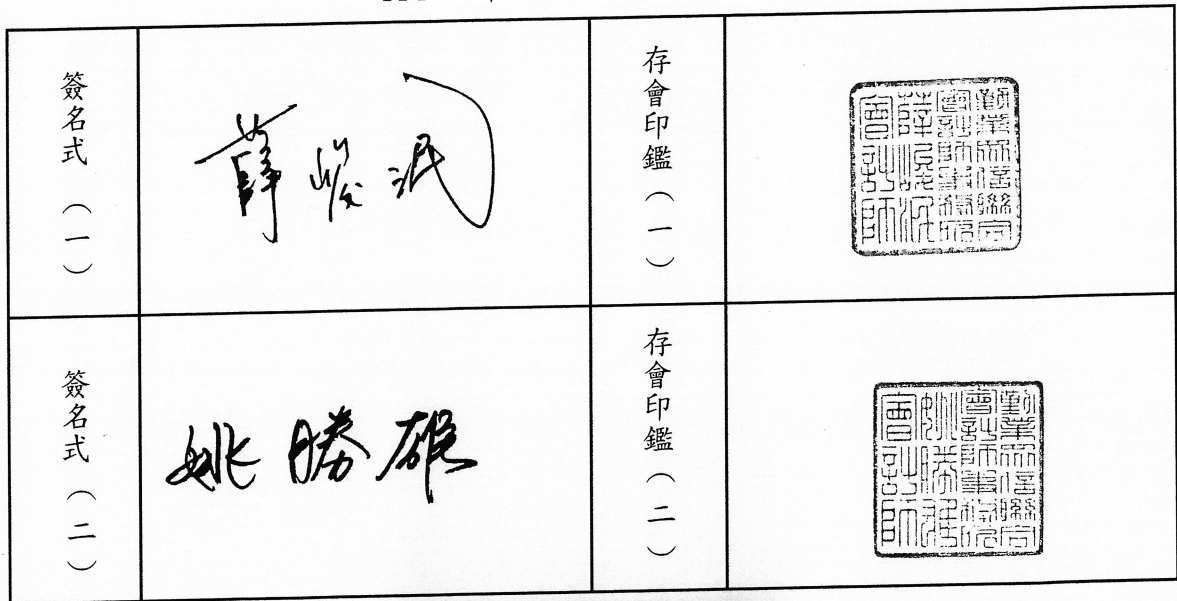 簽名式（一）
薛峻泯
存會印鑑（一）
勤業眾信聯合
會計師事務所
薛峻泯
會計師
簽名式（二）
姚勝雄
存會印鑑（二）
勤業眾信聯合
會計師事務所
姚勝雄
會計師